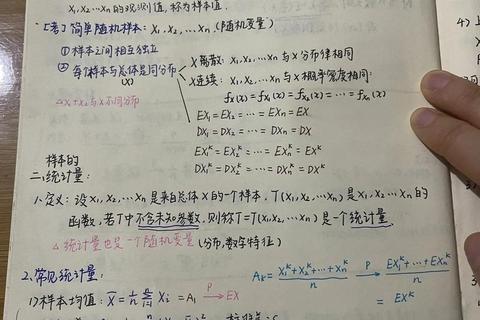 X₁,X₂,…Xₙ的观测值,称为样本值.
[考]简单随机样本: X₁,X₂,…Xₙ (随机变量)
①样本之间相互独立
②每个样本与总体是同分布
(X)
X离散: X₁,X₂,…Xₙ 与X分布律相同
X连续: X₁,X₂,…Xₙ与X概率密度相同:
fₓ(x)=fₓ₁(x)=fₓ₂(x)=…=fₓₙ(x)
△X₁+X₂与X不同分布
EX₁=EX₂=…=EXₙ=EX
DX₁=DX₂=…=DXₙ=DX
EX₁ᵏ=EX₂ᵏ=…=EXₙᵏ=EXᵏ
DX₁ᵏ=DX₂ᵏ=…=DXₙᵏ=DXᵏ
样本的
二、统计量:
1、定义: 设X₁,X₂…Xₙ是来自总体X的一个样本, T(X₁,X₂…Xₙ)是X₁,X₂…Xₙ的
函数,若T中不含未知参数,则称T=T(X₁,X₂,…Xₙ)是一个统计量.
△统计量也是一个随机变量(分布,数字特征)
2、常见统计量:
Aₖ= (X₁ᵏ+X₂ᵏ+…+Xₙᵏ)/n →P (EX₁ᵏ+…+EXₙᵏ)/n
1)样本均值: X̄=1/n Σᵢ₌₁ⁿ Xᵢ =A₁ →P EX
= EXᵏ
4)